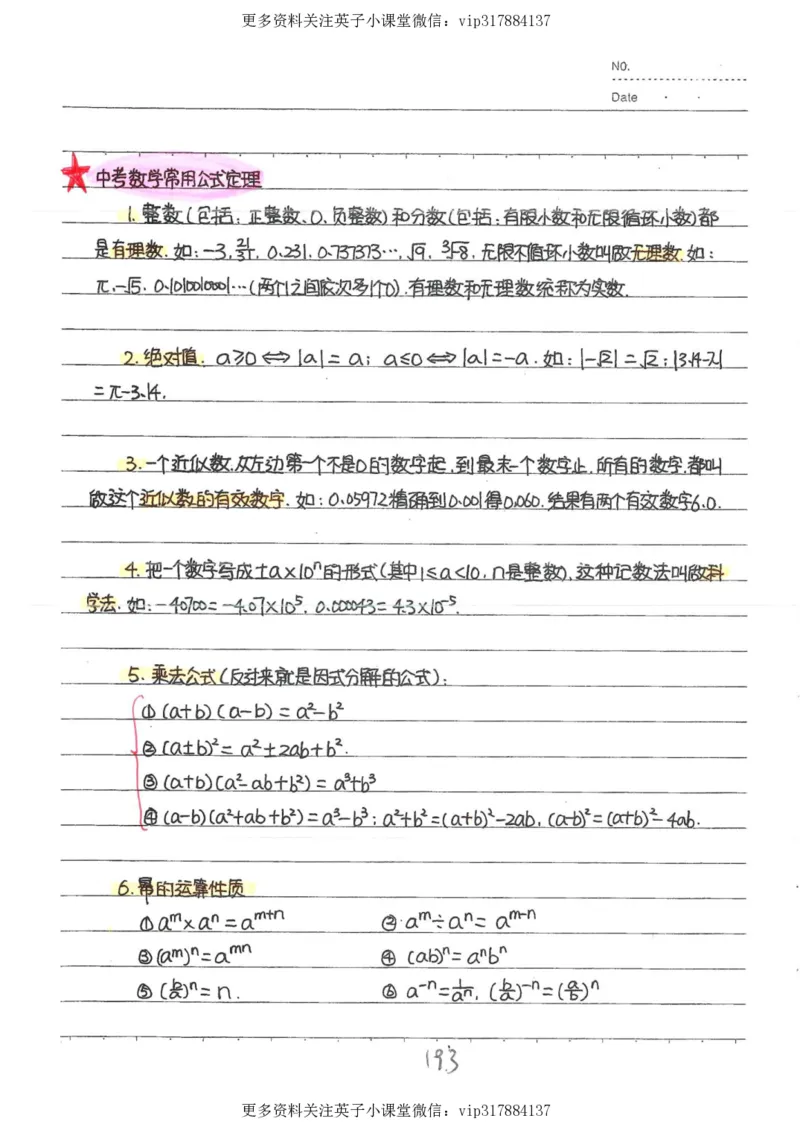 更多资料关注英子小课堂微信：vip317884137
NO.
Date
中考数学常用公式定理
1. 整数(包括：正整数、0、负整数)和分数(包括：有限小数和无限循环小数)都
是有理数. 如：-3, , 0.231, 0.737373…, √9, ³√-8. 无限不循环小数叫做无理数. 如：
π, -√5, 0.1010010001…(两个1之间依次多1个0). 有理数和无理数统称为实数.
2. 绝对值：a≥0⟺|a|=a；a≤0⟺|a|=-a. 如：|-√2|=√2；|3.14-π|
=π-3.14.
3. 一个近似数, 从左边第一个不是0的数字起, 到最末一个数字止, 所有的数字, 都叫
做这个近似数的有效数字. 如：0.05972精确到0.001得0.060, 结果有两个有效数字6, 0.
4. 把一个数字写成±a×10ⁿ的形式(其中1≤a<10, n是整数), 这种记数法叫做科
学法. 如：-40700=-4.07×10⁵, 0.000043=4.3×10⁻⁵.
5. 乘法公式(反过来就是因式分解的公式)：
① (a+b)(a-b)=a²-b²
② (a±b)²=a²±2ab+b².
③ (a+b)(a²-ab+b²)=a³+b³
④ (a-b)(a²+ab+b²)=a³-b³；a²+b²=(a+b)²-2ab, (a-b)²=(a+b)²-4ab.
6. 幂的运算性质
① aᵐ×aⁿ=aᵐ⁺ⁿ ② aᵐ÷aⁿ=aᵐ⁻ⁿ
③ (aᵐ)ⁿ=aᵐⁿ ④ (ab)ⁿ=aⁿbⁿ
⑤ (b/a)ⁿ=n. ⑥ a⁻ⁿ=1/aⁿ, (b/a)⁻ⁿ=(a/b)ⁿ
193
更多资料关注英子小课堂微信：vip317884137